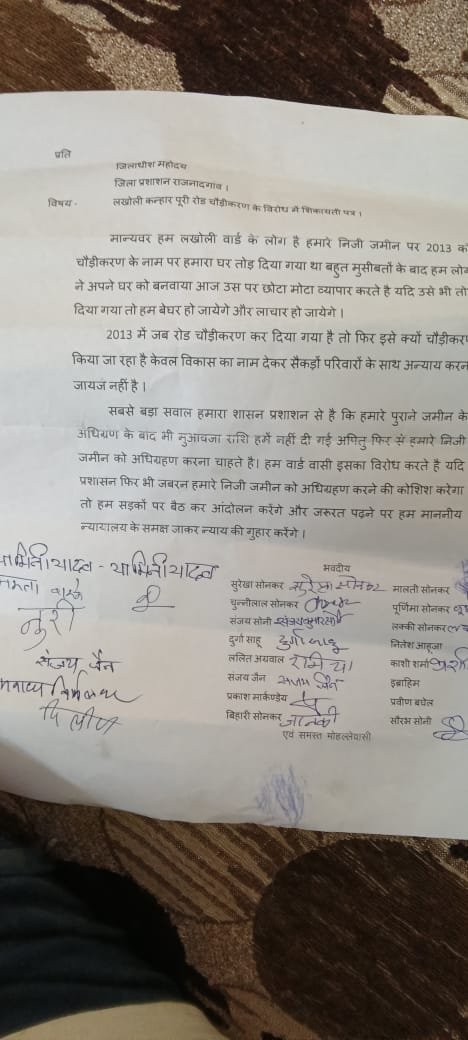 प्रति
जिलाधीश महोदय
जिला प्रशाशन राजनादगांव ।
विषय - लखोली कन्हार पूरी रोड चौड़ीकरण के विरोध में शिकायती पत्र ।
मान्यवर हम लखोली वार्ड के लोग है हमारे निजी जमीन पर 2013 को
चौड़ीकरण के नाम पर हमारा घर तोड़ दिया गया था बहुत मुसीबतों के बाद हम लोग
ने अपने घर को बनवाया आज उस पर छोटा मोटा व्यापार करते है यदि उसे भी तो
दिया गया तो हम बेघर हो जायेगे और लाचार हो जायेगे ।
2013 में जब रोड चौड़ीकरण कर दिया गया है तो फिर इसे क्यों चौड़ीकर
किया जा रहा है केवल विकास का नाम देकर सैकड़ों परिवारों के साथ अन्याय करन
जायज नहीं है ।
सबसे बड़ा सवाल हमारा शासन प्रशाशन से है कि हमारे पुराने जमीन के
अधिग्रण के बाद भी मुआवजा राशि हमें नहीं दी गई अपितु फिर से हमारे निजी
जमीन को अधिग्रहण करना चाहते है। हम वार्ड वासी इसका विरोध करते है यदि
प्रशासन फिर भी जबरन हमारे निजी जमीन को अधिग्रहण करने की कोशिश करेगा
तो हम सड़कों पर बैठ कर आंदोलन करेंगे और जरुरत पढ़ने पर हम माननीय
न्यायालय के समक्ष जाकर न्याय की गुहार करेंगे ।
भवदीय
यामिनी यादव - यामिनी यादव
सुरेखा सोनकर सुरेखा सोनकर मालती सोनकर
चुन्नीलाल सोनकर पूर्णिमा सोनकर
नुरी
संजय सोनी लक्की सोनकर
दुर्गा साहू दुर्गा साहू नितेश आहूजा
संजय जैन
ललित अग्रवाल काशी शर्मा
संजय जैन संजय जैन इब्राहिम
प्रकाश मार्कण्डेय प्रवीण बघेल
दिलीप
बिहारी सोनकर जानकी सौरभ सोनी
एवं समस्त मोहल्लेवासी